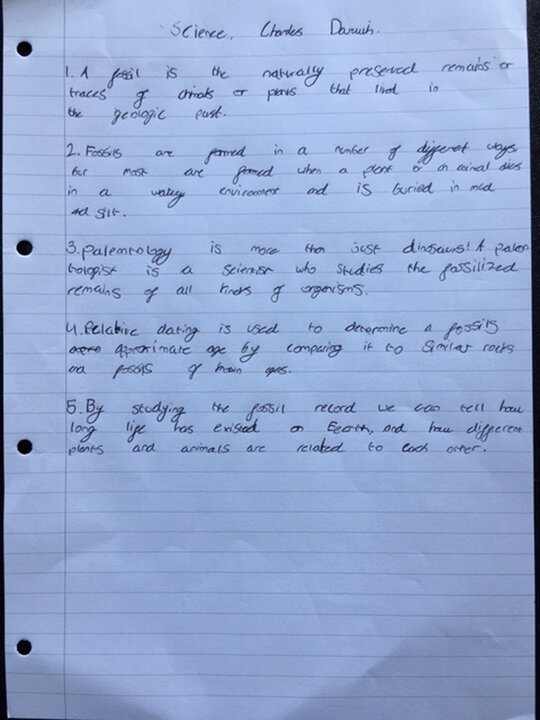 Science. Charles Darwin.
1. A fossil is the naturally preserved remains or
traces of animals or plants that lived in
the geologic past.
2. Fossils are formed in a number of different ways
but most are formed when a plant or an animal dies
in a watery environment and is buried in mud
and silt.
3. Palentology is more than just dinosaurs! A paleo
tologist is a scientist who studies the fossilized
remains of all kinds of organisms.
4. Relative dating is used to determine a fossils
approximate age by comparing it to similar rocks
and fossils of ages.
5. By studying the fossil record we can tell how
long life has existed on Earth, and how different
plants and animals are related to each other.